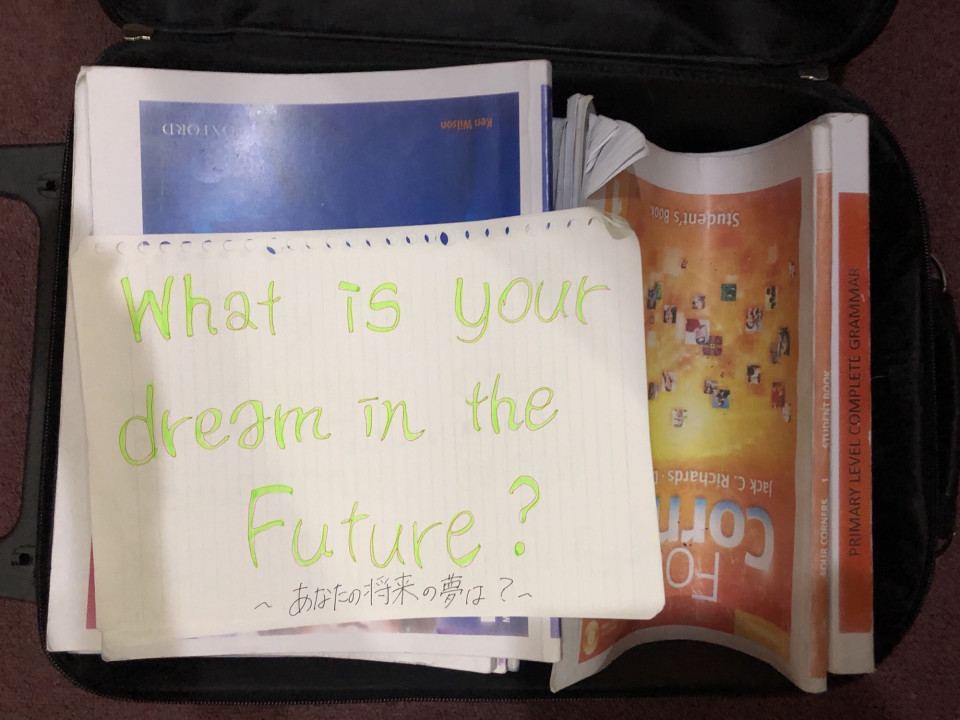 OXFORD
Ken Wilson
What is your
dream in the
Future?
~ あなたの将来の夢は？~
Student's Book
Jack C. Richards · D
Four
Corn
FOUR CORNERS 1 STUDENT BOOK
PRIMARY LEVEL COMPLETE GRAMMAR